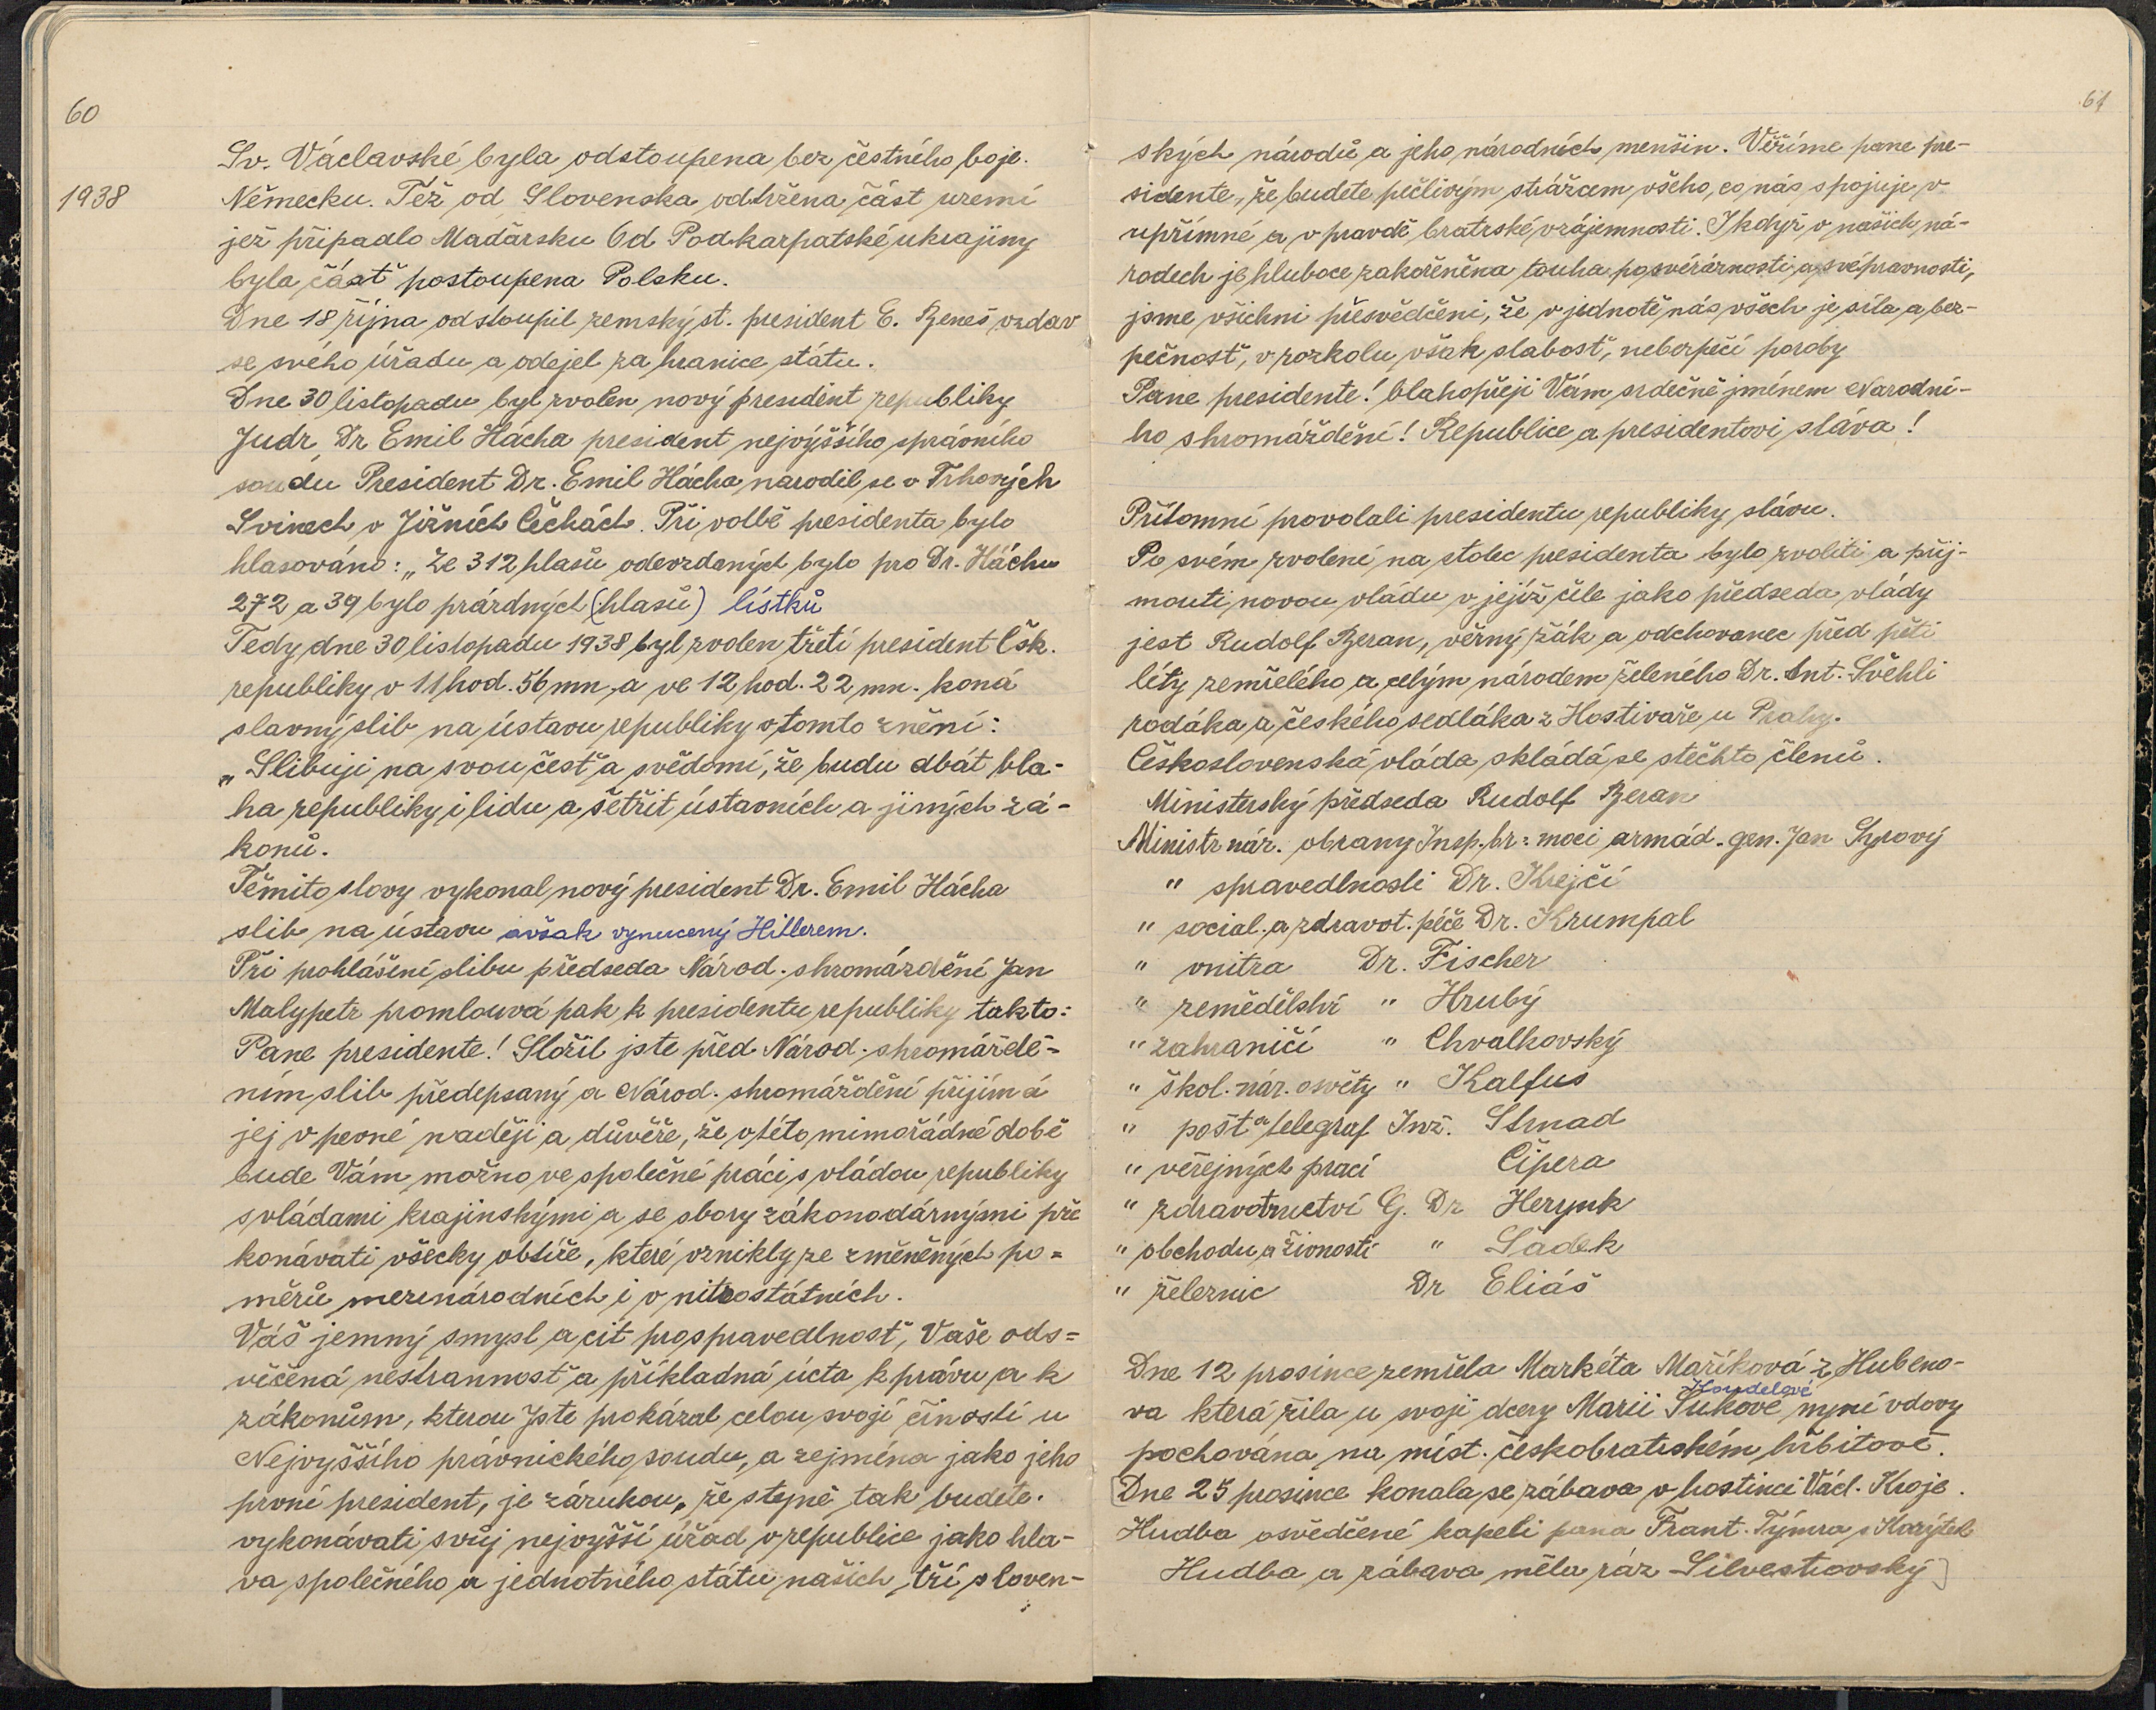 60
Sv. Václavské byla odstoupena bez čestného boje.
1938
Německu. Též od Slovenska odtržena část uzemí
jež připadlo Maďarsku Od Podkarpatské ukrajiny
byla část postoupena Polsku.
Dne 18 října odstoupil zemský st. president E. Beneš vzdav
se svého úřadu a odejel za hranice státu.
Dne 30 listopadu byl zvolen nový president republiky
Judr Dr Emil Hácha president nejvýššího správního
soudu President Dr. Emil Hácha narodil se v Trhových
Svinech v Jižních Čechách. Při volbě presidenta bylo
hlasováno: „Ze 312 hlasů odevzdaných bylo pro Dr. Háchu
272 a 39 bylo prázdných (hlasů) lístků
Tedy dne 30 listopadu 1938 byl zvolen třetí president Čsk.
republiky v 11 hod. 56 mn, a ve 12 hod. 22 mn. koná
slavný slib na ústavu republiky v tomto znění:
„Slibuji na svou česť a svědomí, že budu dbát bla-
ha republiky i lidu a šetřit ústavních a jiných zá-
konů.
Těmito slovy vykonal nový president Dr. Emil Hácha
slib na ústavu avšak vynucený Hitlerem.
Při prohlášení slibu předseda Národ. shromáždění Jan
Malypetr promlouvá pak k presidentu republiky takto:
Pane presidente! Složil jste před Národ. shromáždě=
ním slib předepsaný a Národ. shromáždění přijímá
jej v pevné naději a důvěře, že v této mimořádné době
bude Vám možno ve společné práci s vládou republiky
s vládami krajinskými a se sbory zákonodárnými pře
konávati všecky obtíže, které vznikly ze změněných po=
měrů mezinárodních i vnitrostátních.
Váš jemný smysl a cit pro spravedlnosť, Vaše osv=
věčená nestrannosť a příkladná úcta k právu a k
zákonům, kterou Jste prokázal celou svojí čiností u
Nejvyššího právnického soudu, a zejména jako jeho
první president, je zárukou, že stejně tak budete.
vykonávati svůj nejvyšší úřad v republice jako hla-
va společného a jednotného státu našich tří sloven-
61
ských národů a jeho národních menšin. Věříme pane pre-
sidente, že budete pečlivým strážcem všeho, co nás spojuje v
upřímné a v pravdě bratrské vzájemnosti. I když v našich ná-
rodech je hluboce zakořeněna touha po svéráznosti a svéprávnosti,
jsme všichni přesvědčeni, že v jednotě nás všech je síla a bez-
pečnosť, v rozkolu však slabosť, nebezpečí poroby
Pane presidente! blahopřeji Vám srdečně jménem Narodní-
ho shromáždění! Republice a presidentovi sláva!
Přítomní provolali presidentu republiky slávu.
Po svém zvolení na stolec presidenta bylo zvoliti a přij-
mouti novou vládu v jejíž čele jako předseda vlády
jest Rudolf Beran, věrný žák a odchovanec před pěti
léty zemřelého a celým národem želeného Dr. Ant. Švehli
rodáka a českého sedláka z Hostivaře u Prahy.
Československá vláda skládá se stěchto členů.
Ministerský předseda Rudolf Beran
Ministr nár. obrany Insp. br: moci armád. gen. Jan Syrový
" spravedlnosti Dr. Krejčí
" social. a zdravot. péče Dr. Krumpal
" vnitra Dr. Fischer
" zemědělství " Hrubý
" zahraničí " Chvalkovský
" škol. nár. osvěty " Kalfus
" pošt a telegraf Inž. Strnad
" veřejných prací Čipera
" zdravotnuctví G. Dr Herynk
" obchodu a živnosti " Šádek
" železnic Dr Eliáš
Dne 12 prosince zemřela Markéta Maříková z Hubeno-
Houdelové
va která žila u svojí dcery Marii Šukové nyní vdovy
pochována na míst. českobratrském hřbitově.
[Dne 25 prosince konala se zábava v hostinci Václ. Kroje.
Hudba osvědčené kapeli pana Frant. Týmra z Korýtek
Hudba a zábava měla ráz Silvestrovský]